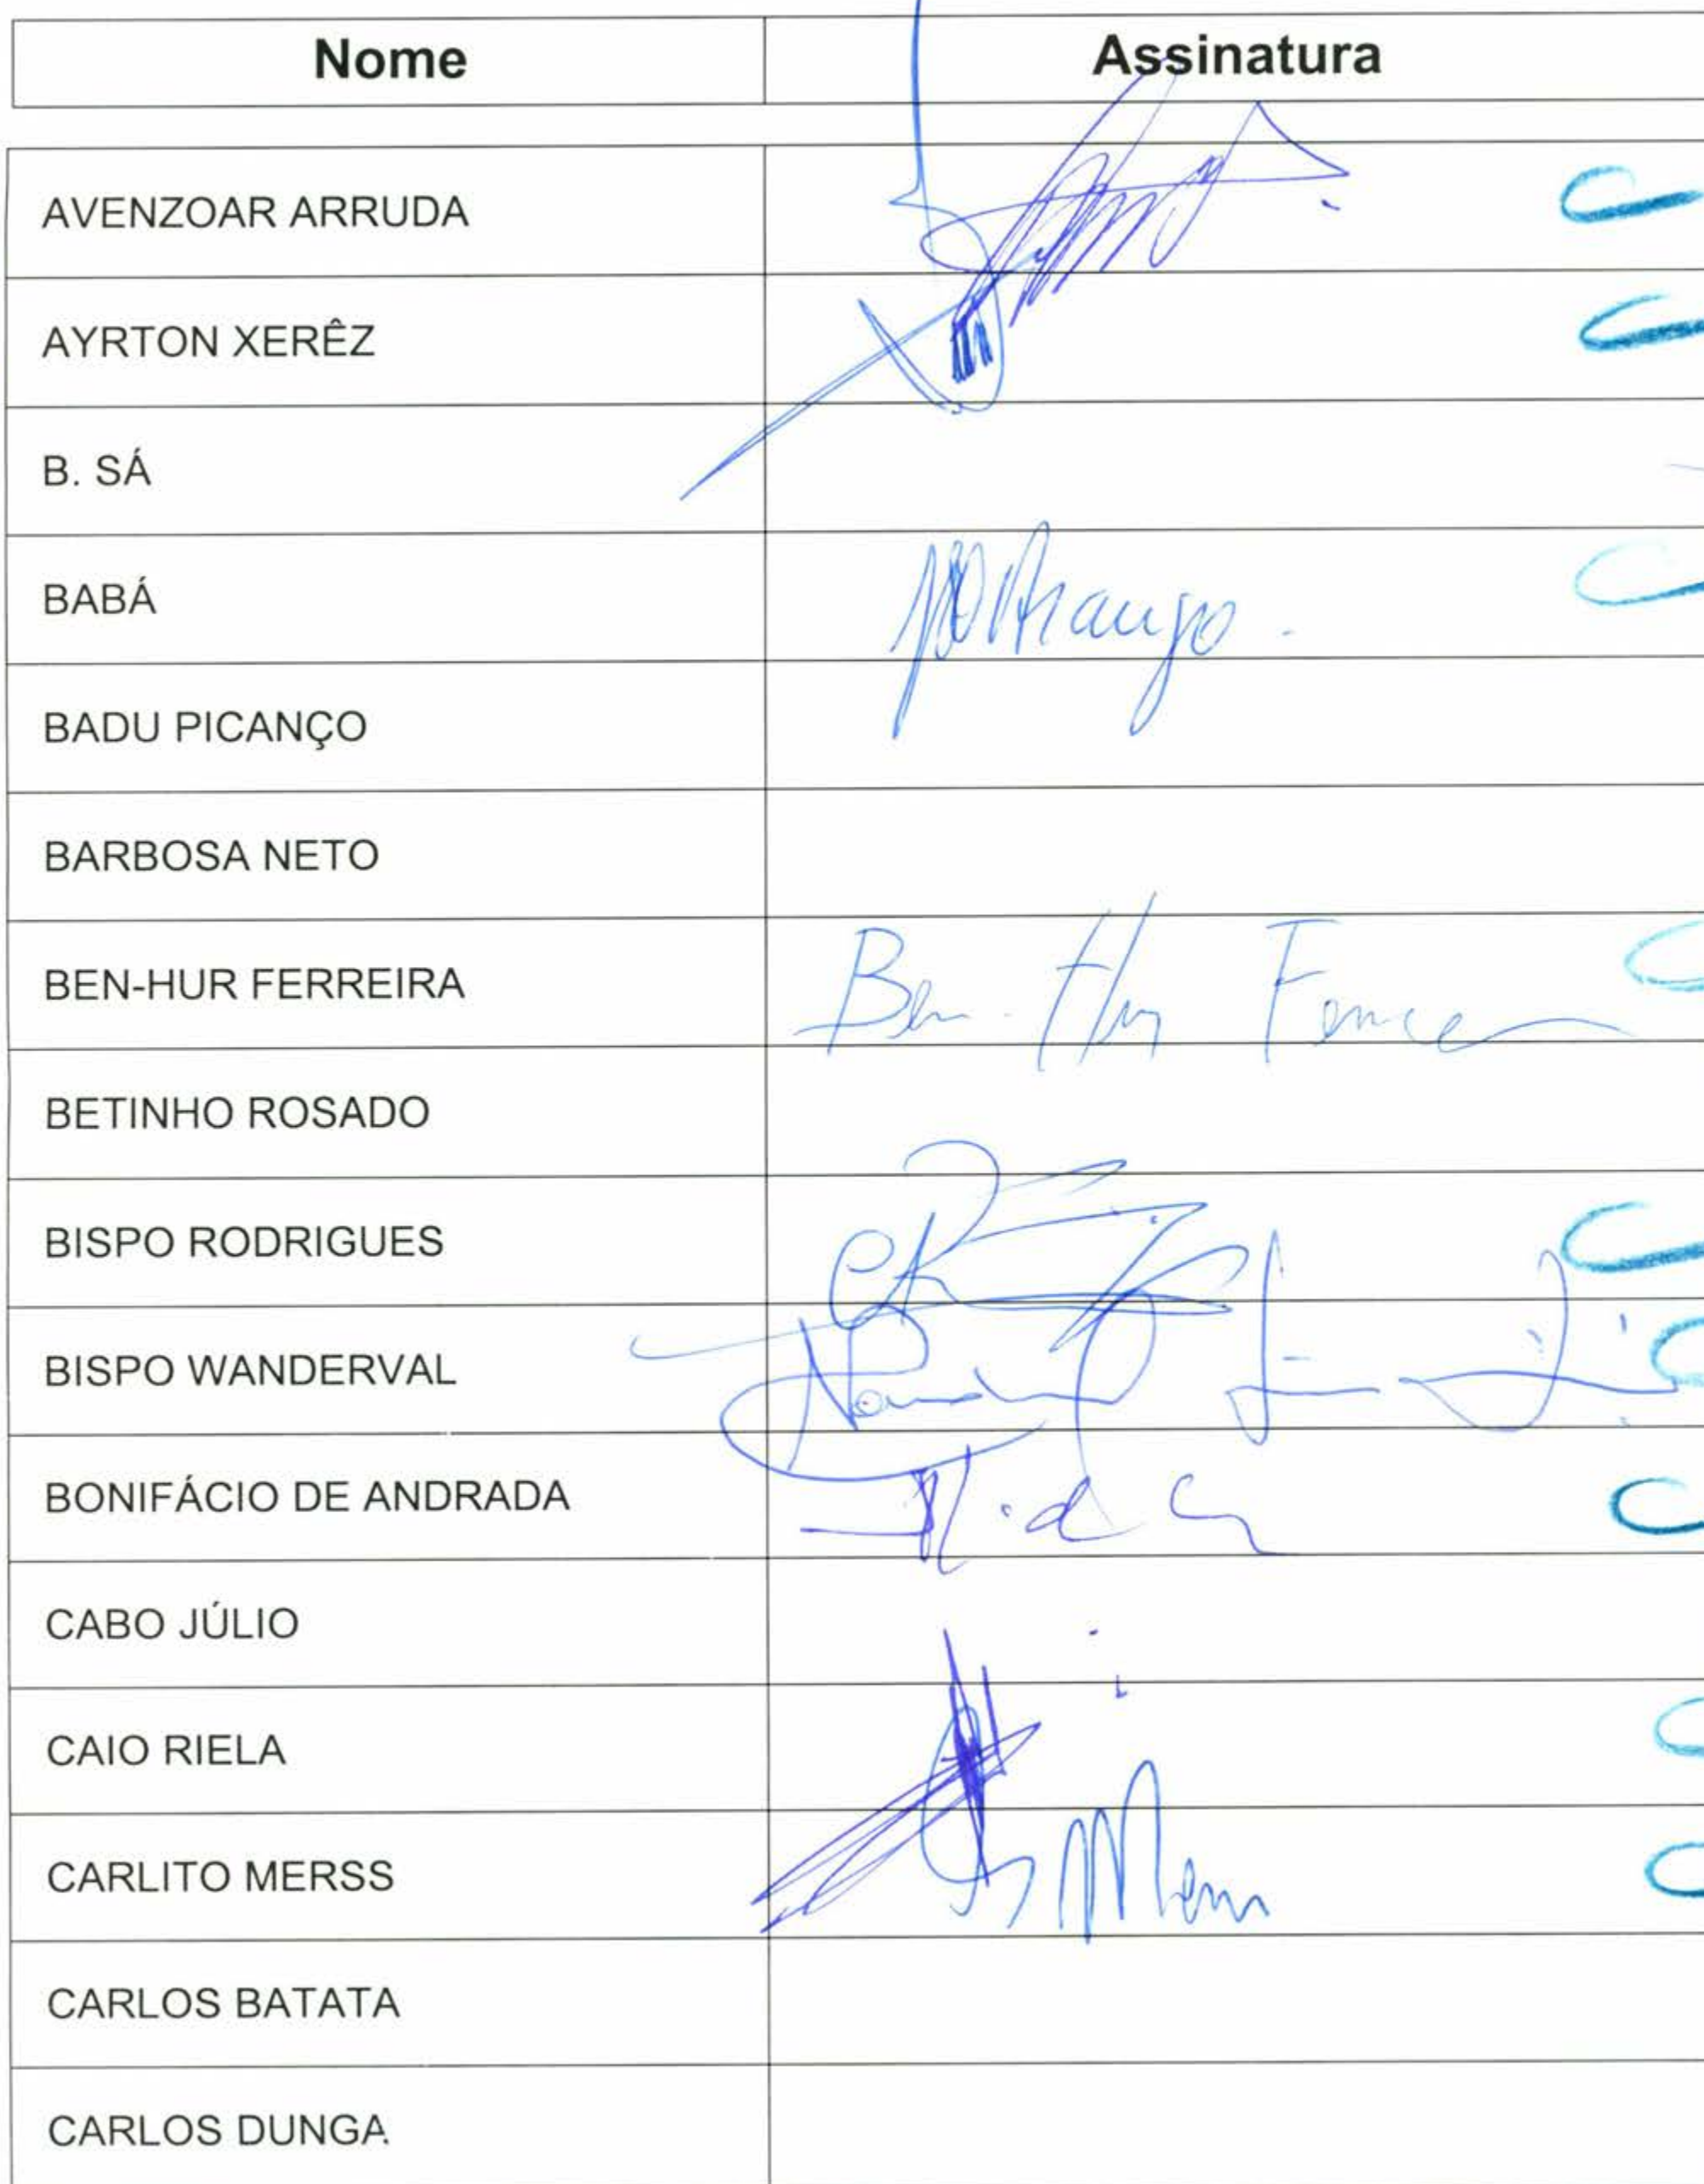 Nome Assinatura
AVENZOAR ARRUDA
AYRTON XERÊZ
B. SÁ
BABÁ
BADU PICANÇO
BARBOSA NETO
BEN-HUR FERREIRA Ben-Hur
BETINHO ROSADO
BISPO RODRIGUES
BISPO WANDERVAL
BONIFÁCIO DE ANDRADA
CABO JÚLIO
CAIO RIELA
CARLITO MERSS
CARLOS BATATA
CARLOS DUNGA